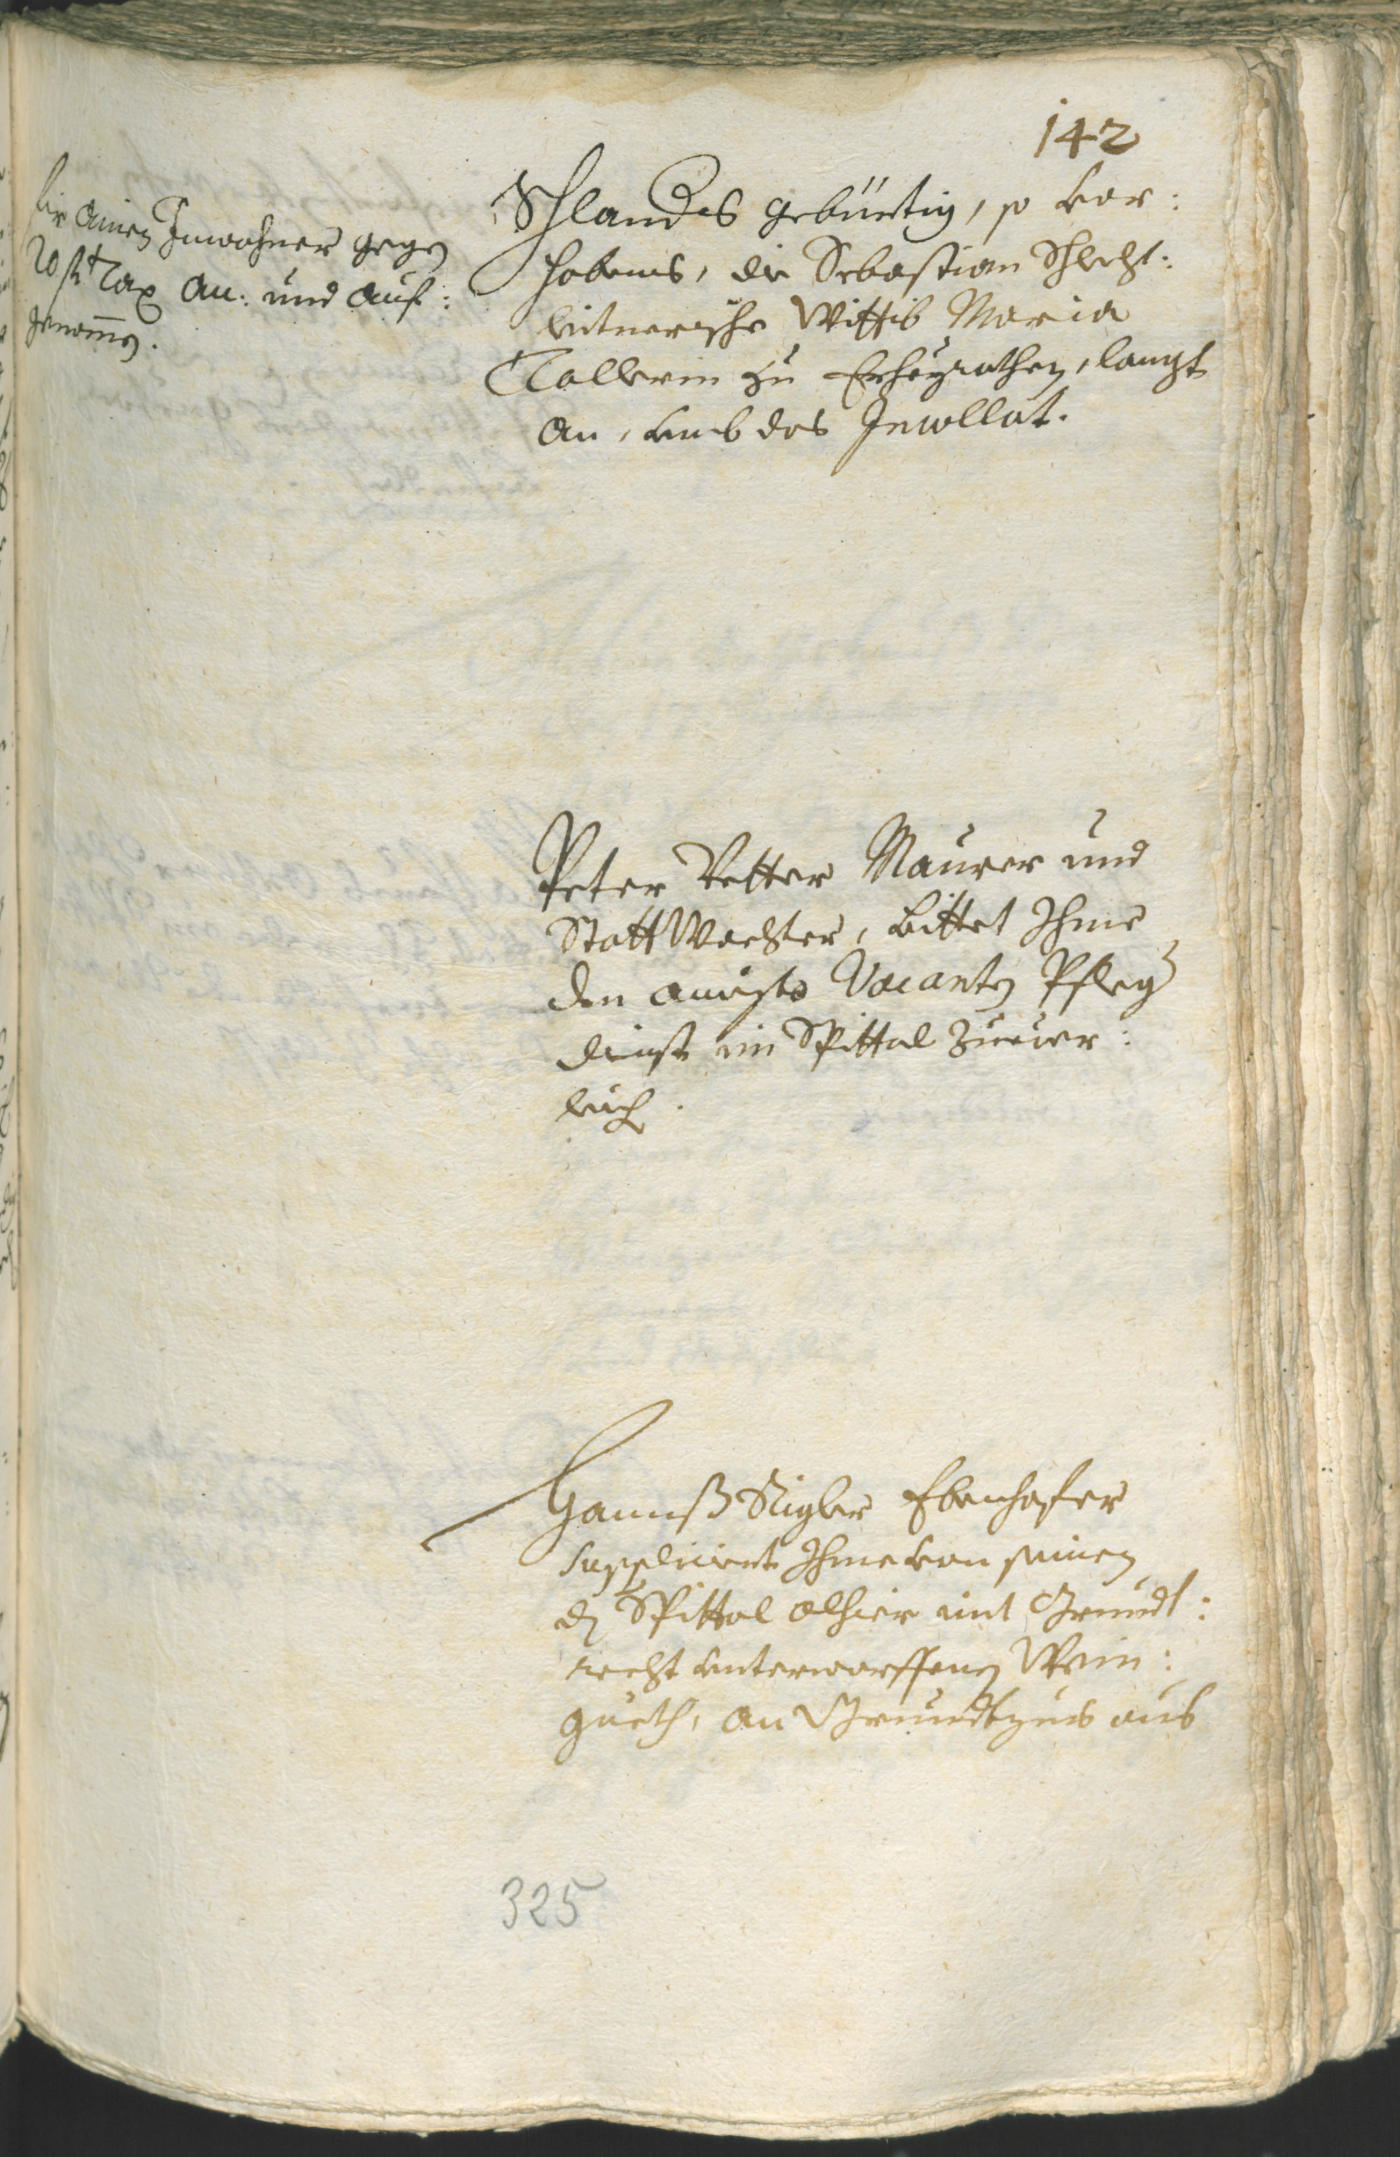 142
für ainen Inwohner gegen
20 fl Tax an: und auf:
genomen.
Schlanders gebürtig, so vor:
habens, die Sebastian Schlecht:
leitnerische Wittib Maria
Tallerin zu Erheyrathen, langt
an, umb das Incollat.
Peter Vetter Maurer und
Statt Wachter, bittet Ihme
den anizto Vacanten Pfleg
dienst im Spittal zuuer:
leich.
Hannß Rigler Ebenhofer
suppliciert Ihme von seinen
dem Spittal alhier mit Grundt:
recht unterworffenen Wein:
gueth, an Grundtzins aus
325